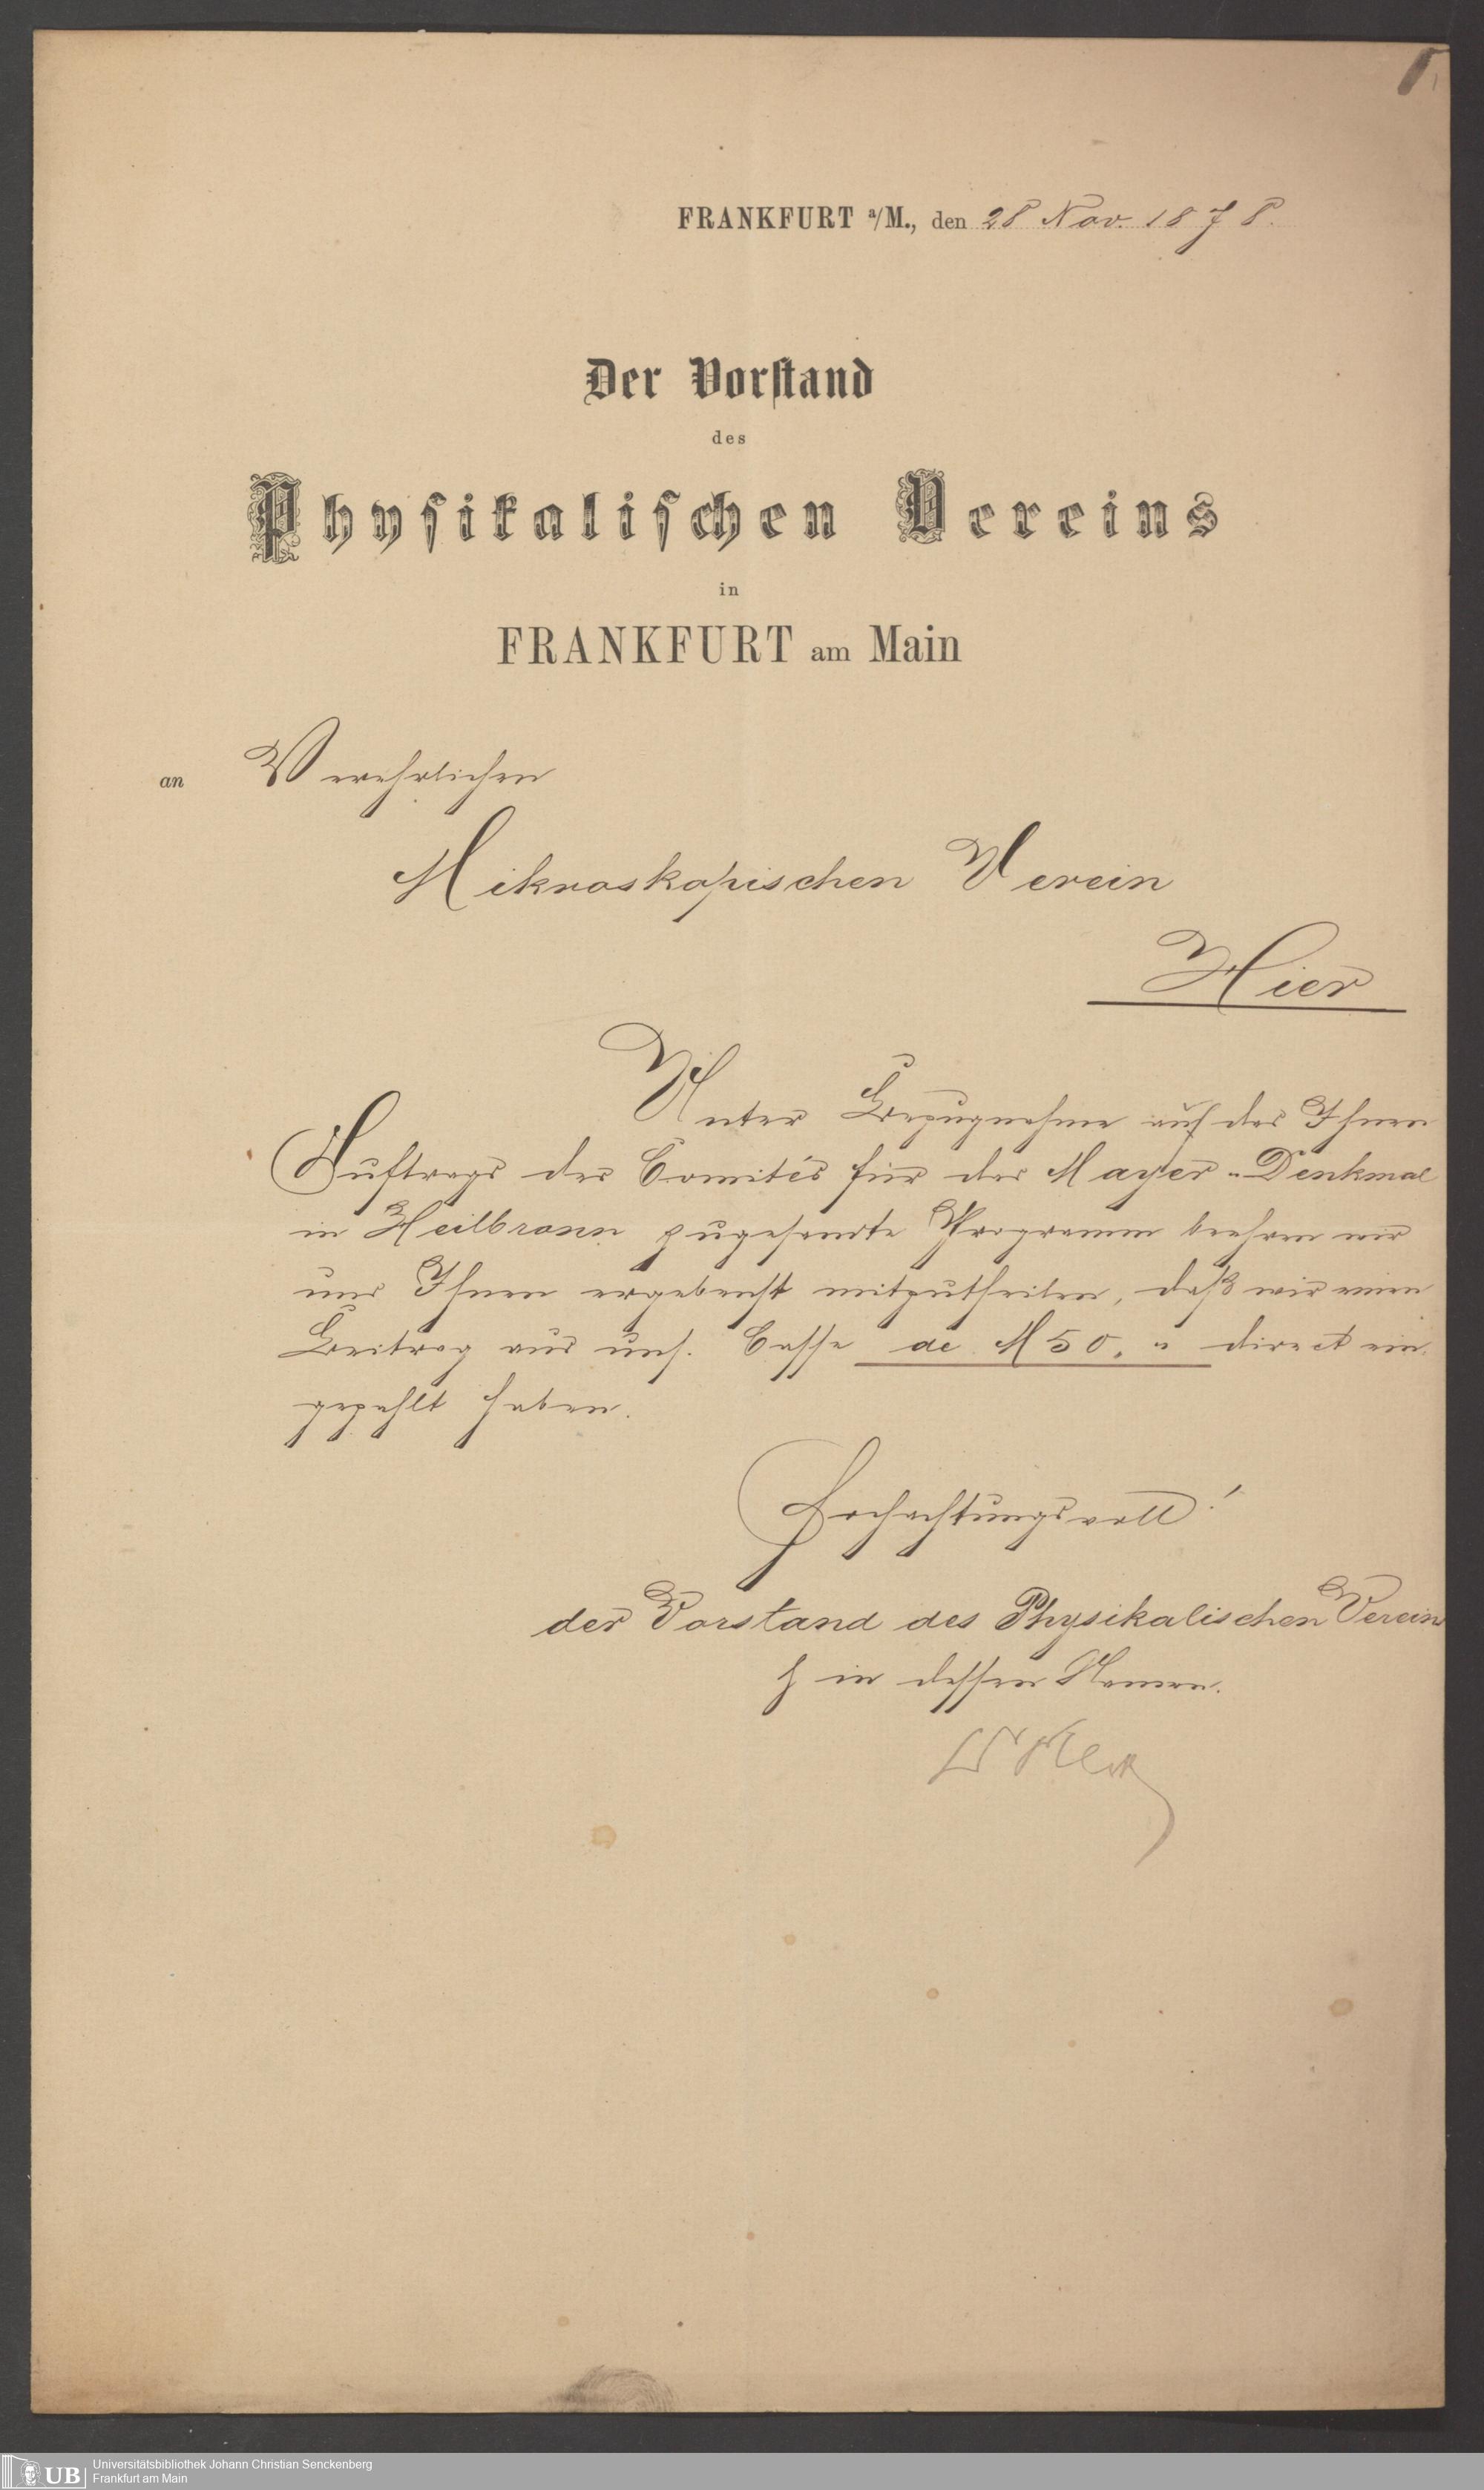 FRANKFURT a/M., den 28 Nov. 1878.
Der Vorstand
des
Physikalischen Vereins
in
FRANKFURT am Main
an Verehrlichen
Mikroskopischen Verein
Hier
Unter Bezugnahme auf das Ihnen
Auftrags des Comités für das Mayer-Denkmal
in Heilbronn zugesandte Programm beehren wir
uns Ihnen ergebenst mitzutheilen, daß wir einen
Beitrag aus uns. Casse de M 50. " direct ein-
gezahlt haben.
Hochachtungsvoll!
der Vorstand des Physikalischen Vereins
in dessen Namen.
UB Universitätsbibliothek Johann Christian Senckenberg
Frankfurt am Main